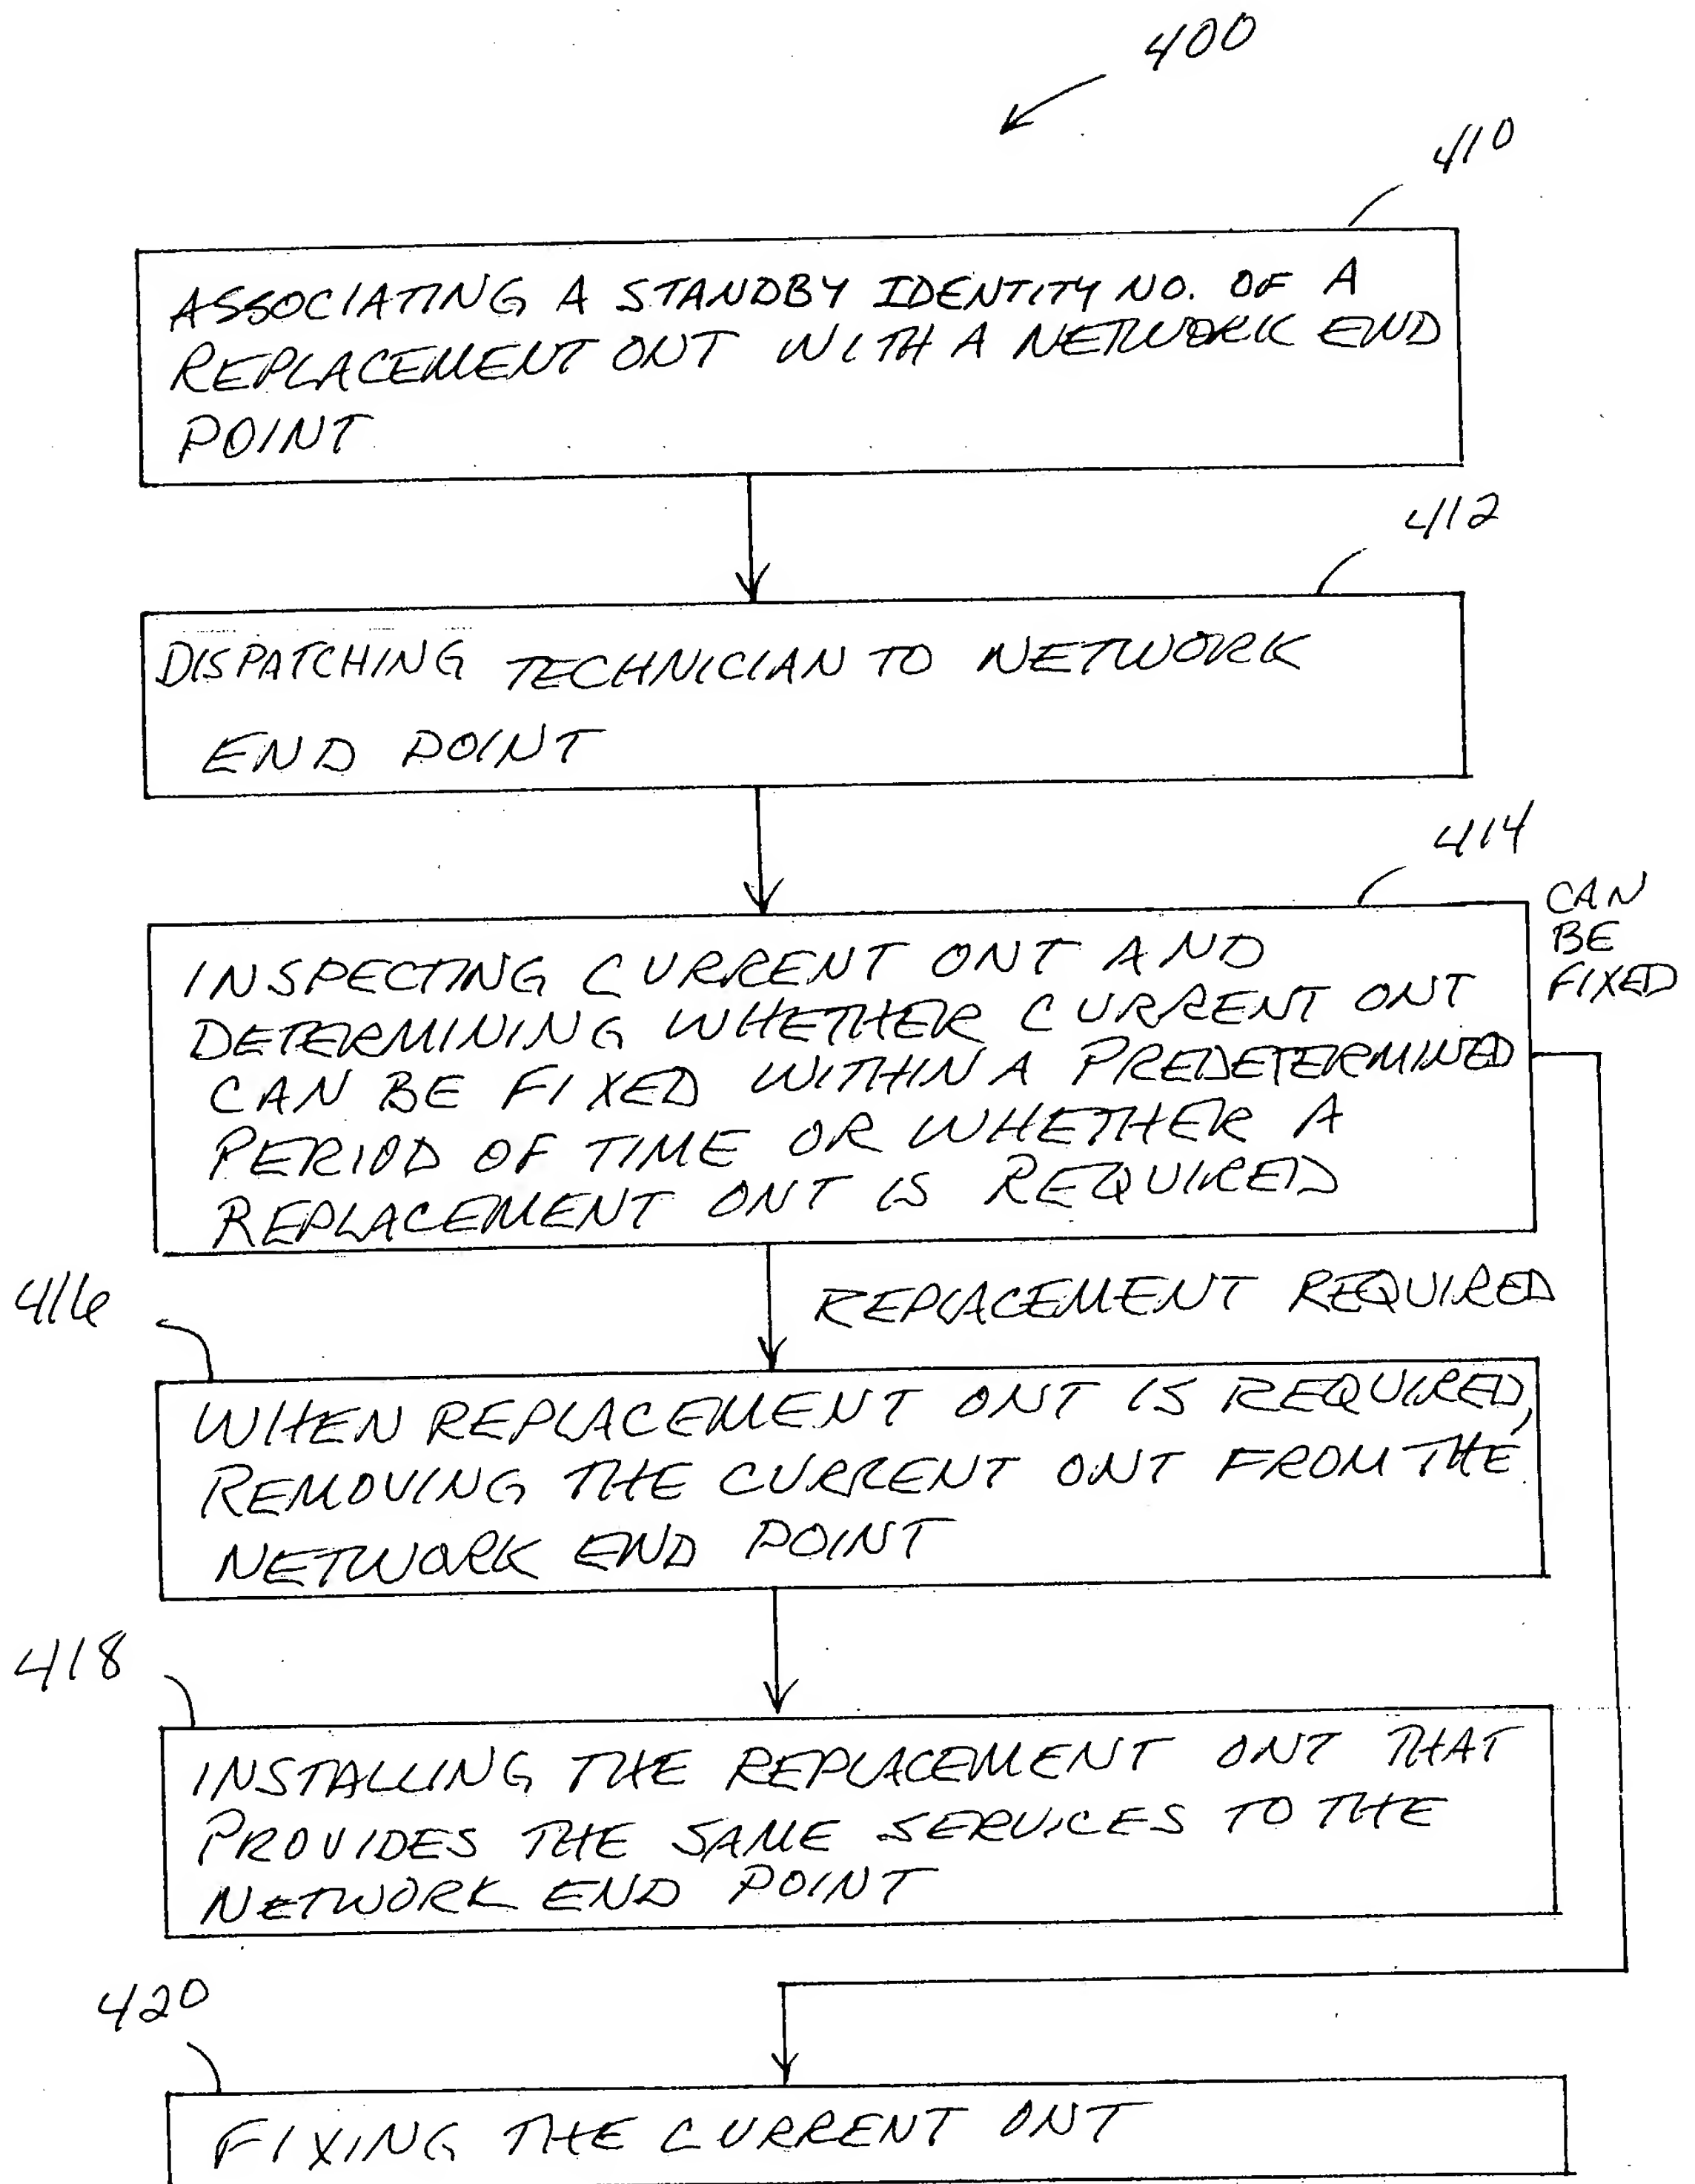 400
410
ASSOCIATING A STANDBY IDENTITY NO. OF A
REPLACEMENT ONT WITH A NETWORK END
POINT
412
DISPATCHING TECHNICIAN TO NETWORK
END POINT
414
CAN
BE
FIXED
INSPECTING CURRENT ONT AND
DETERMINING WHETHER CURRENT ONT
CAN BE FIXED WITHIN A PREDETERMINED
PERIOD OF TIME OR WHETHER A
REPLACEMENT ONT IS REQUIRED
REPLACEMENT REQUIRED
416
WHEN REPLACEMENT ONT IS REQUIRED,
REMOVING THE CURRENT ONT FROM THE
NETWORK END POINT
418
INSTALLING THE REPLACEMENT ONT THAT
PROVIDES THE SAME SERVICES TO THE
NETWORK END POINT
420
FIXING THE CURRENT ONT